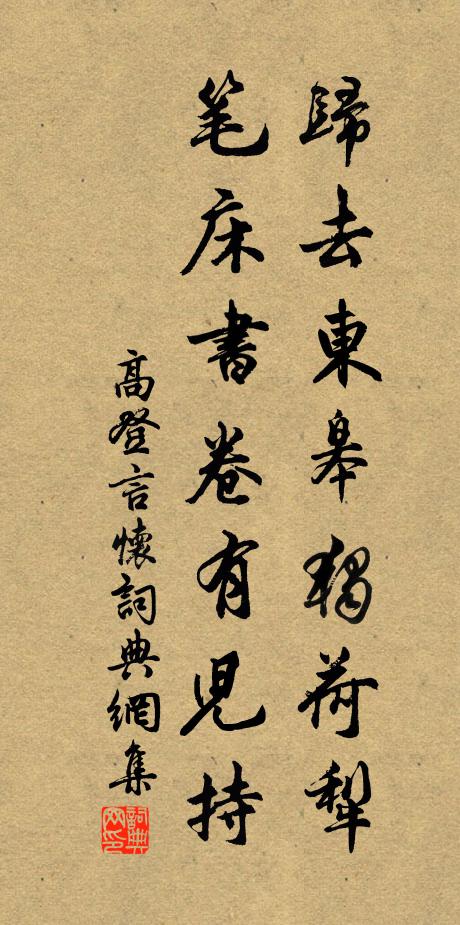 歸去東皋獨荷犁
笔床書卷有児持
高登言懷詞典網集
詞典网印